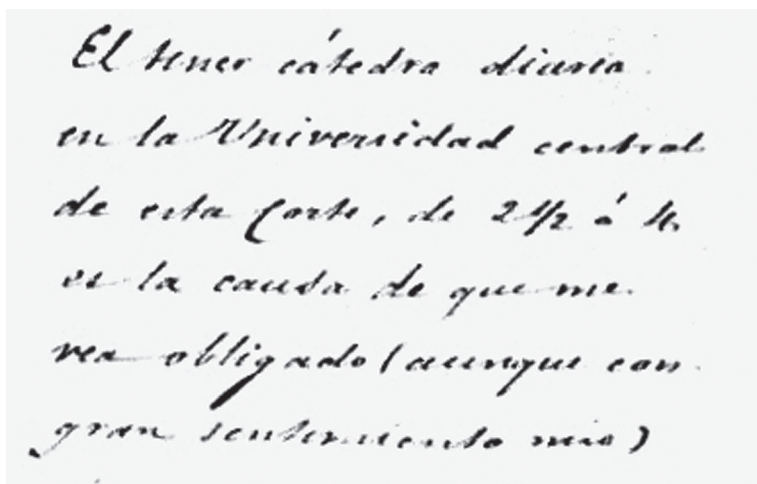 El tener cátedra diaria
en la Universidad central
de esta Corte, de 2 1/2 á 4.
es la causa de que me
vea obligado (aunque con
gran sentimiento mio)